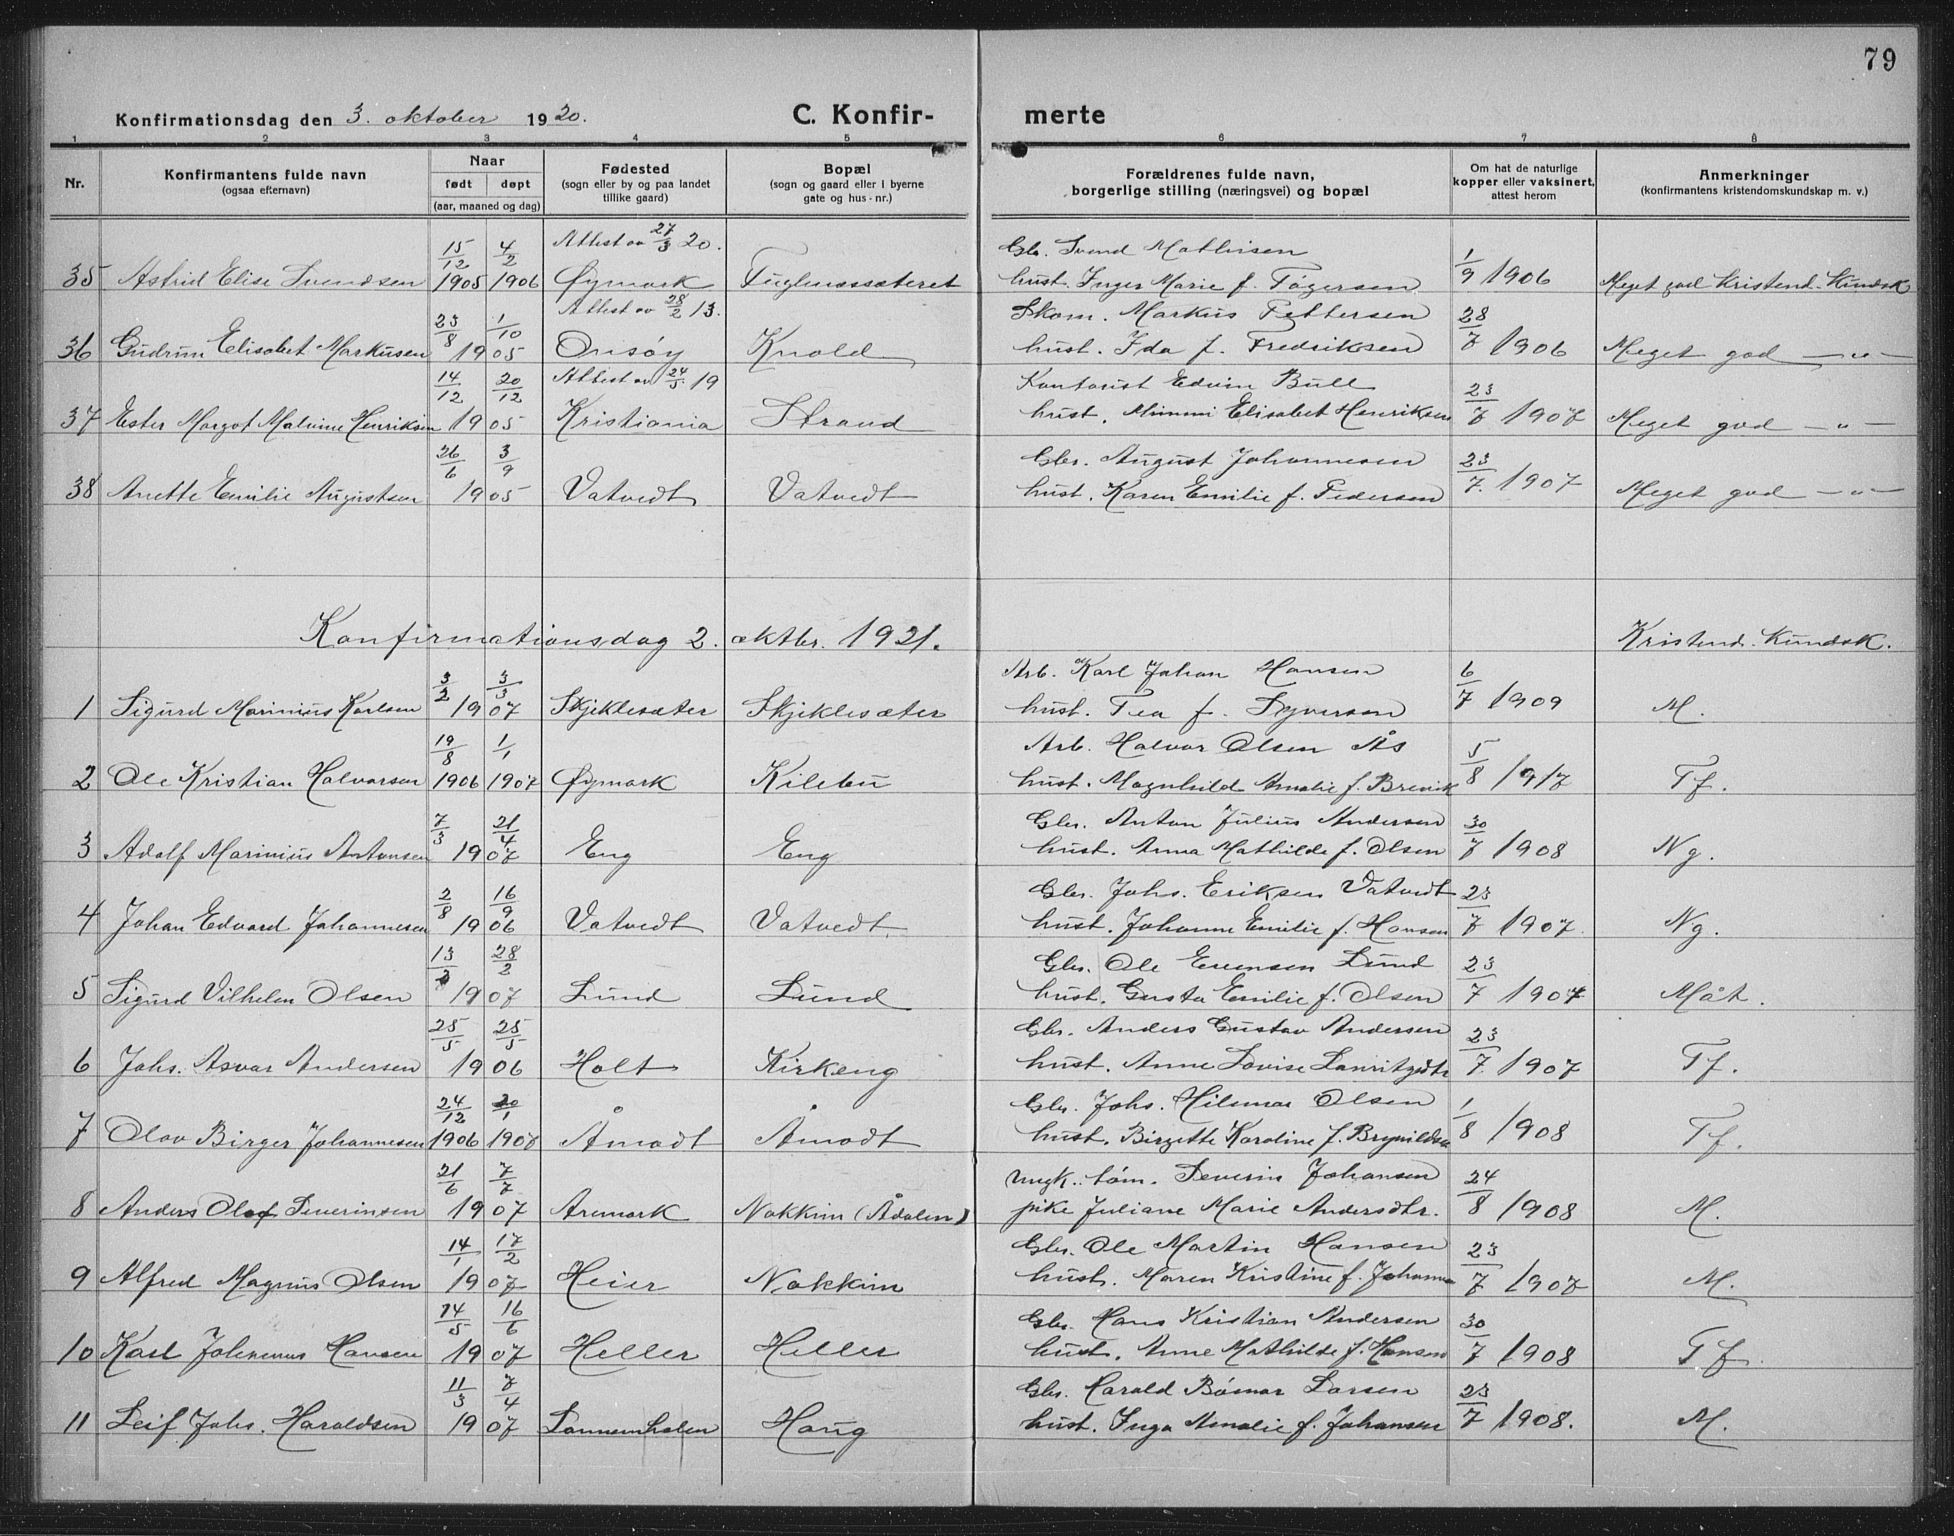 79
Konfirmationsdag den 3. oktober 1920.
C. Konfir-
merte
1 2 3 4 5 6 7 8
Nr.
Konfirmantens fulde navn
(ogsaa efternavn)
Naar
født
døpt
(aar, maaned og dag)
Fødested
(sogn eller by og paa landet
tillike gaard)
Bopæl
(sogn og gaard eller i byerne
gate og hus-nr.)
Forældrenes fulde navn,
borgerlige stilling (næringsvei) og bopæl
Om hat de naturlige
kopper eller vaksinert,
attest herom
Anmerkninger
(konfirmantens kristendomskundskap m. v.)
15/12 4/2 Attest av 27/3 20. Gbr. Svend Mathisen
35 Astrid Elise Svendsen 1905 1906 Øymark Fuglmossæteret hust. Inger Marie f. Tøgersen 1/9 1906 Meget god Kristend. Kundsk
23/8 1/10 Attest av 28/2 13. Skom. Markus Pettersen
36 Gudrun Elisabet Markusen 1905 Onsøy Knold hust. Ida f. Fredriksen 28/7 1906 Meget god —„—
14/12 20/12 Attest av 24/5 19 Kontorist Edvin Bull
37 Ester Margot Malvine Henriksen 1905 Kristiania Strand hust. Mimmi Elisabet Henriksen 23/7 1907 Meget god —„—
26/6 3/9 Gbr. August Johannesen
38 Anette Emilie Augustsen 1905 Vatvedt Vatvedt hust. Karen Emilie f. Pedersen 23/7 1907 Meget god —„—
Konfirmationsdag 2. oktbr. 1921. Kristend. Kundsk.
3/2 3/3 Arb. Karl Johan Hansen
1 Sigurd Marinius Karlsen 1907 Skjiklesæter Skjiklesæter hust. Tea f. Syversen 6/7 1909 M.
19/8 1/1 Arb. Halvor Olsen Ås
2 Ole Kristian Halvorsen 1906 1907 Øymark Kilebu hust. Magnhild Amalie f. Brevik 5/8 1917 Tf.
7/3 21/4 Gbr. Anton Julius Andersen
3 Adolf Marinius Antonsen 1907 Eng Eng hust. Anna Mathilde f. Olsen 30/7 1908 Ng.
2/8 16/9 Gbr. Johs. Eriksen Vatvedt
4 Johan Edvard Johannesen 1906 Vatvedt Vatvedt. hust. Johanne Emilie f. Hansen 23/7 1907. Ng.
13/2 28/2 Gbr. Ole Evensen Lund
5 Sigurd Vilhelm Olsen 1907 Lund Lund hust. Gusta Emilie f. Olsen 23/7 1907 Måt.
25/5 25/5 Gbr. Anders Gustav Andersen
6 Johs. Asvar Andersen 1906 Holt Kirkeng hust. Anne Lovise Lauritzdtr 23/7 1907 Tf.
24/12 20/1 Gbr. Johs. Hilmar Olsen
7 Olav Birger Johannesen 1906 1907 Åmodt Åmodt hust. Birgette Karoline f. Brynildsen 1/8 1908 Tf.
21/6 7/7 ungk. tøm. Severin Johansen
8 Anders Olaf Severinsen 1907 Aremark Nokkim (Ådalen) pike Juliane Marie Andersdtr. 24/8 1908 M.
14/1 17/2 Gbr. Ole Martin Hansen
9 Alfred Magnus Olsen 1907 Heier Nokkim hust. Maren Kristine f. Johanne 23/7 1907 M.
14/5 16/6 Gbr. Hans Kristian Andersen
10 Karl Johannes Hansen 1907 Heller Heller hust. Anne Mathilde f. Hansen 30/7 1908 Tf.
11/3 7/4 Gbr. Harald Bømar Larsen
11 Leif Johs. Haraldsen 1907 Haug hust. Inga Amalie f. Johansen 23/7 1908. M.